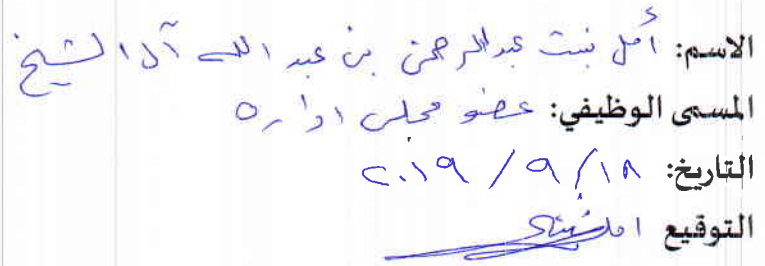 الاسم: أمل بنت عبدالرحمن بن عبد الله آل الشيخ
المسمى الوظيفي: عضو مجلس اداره
التاريخ: ٢٠١٩/٩/١٨
التوقيع